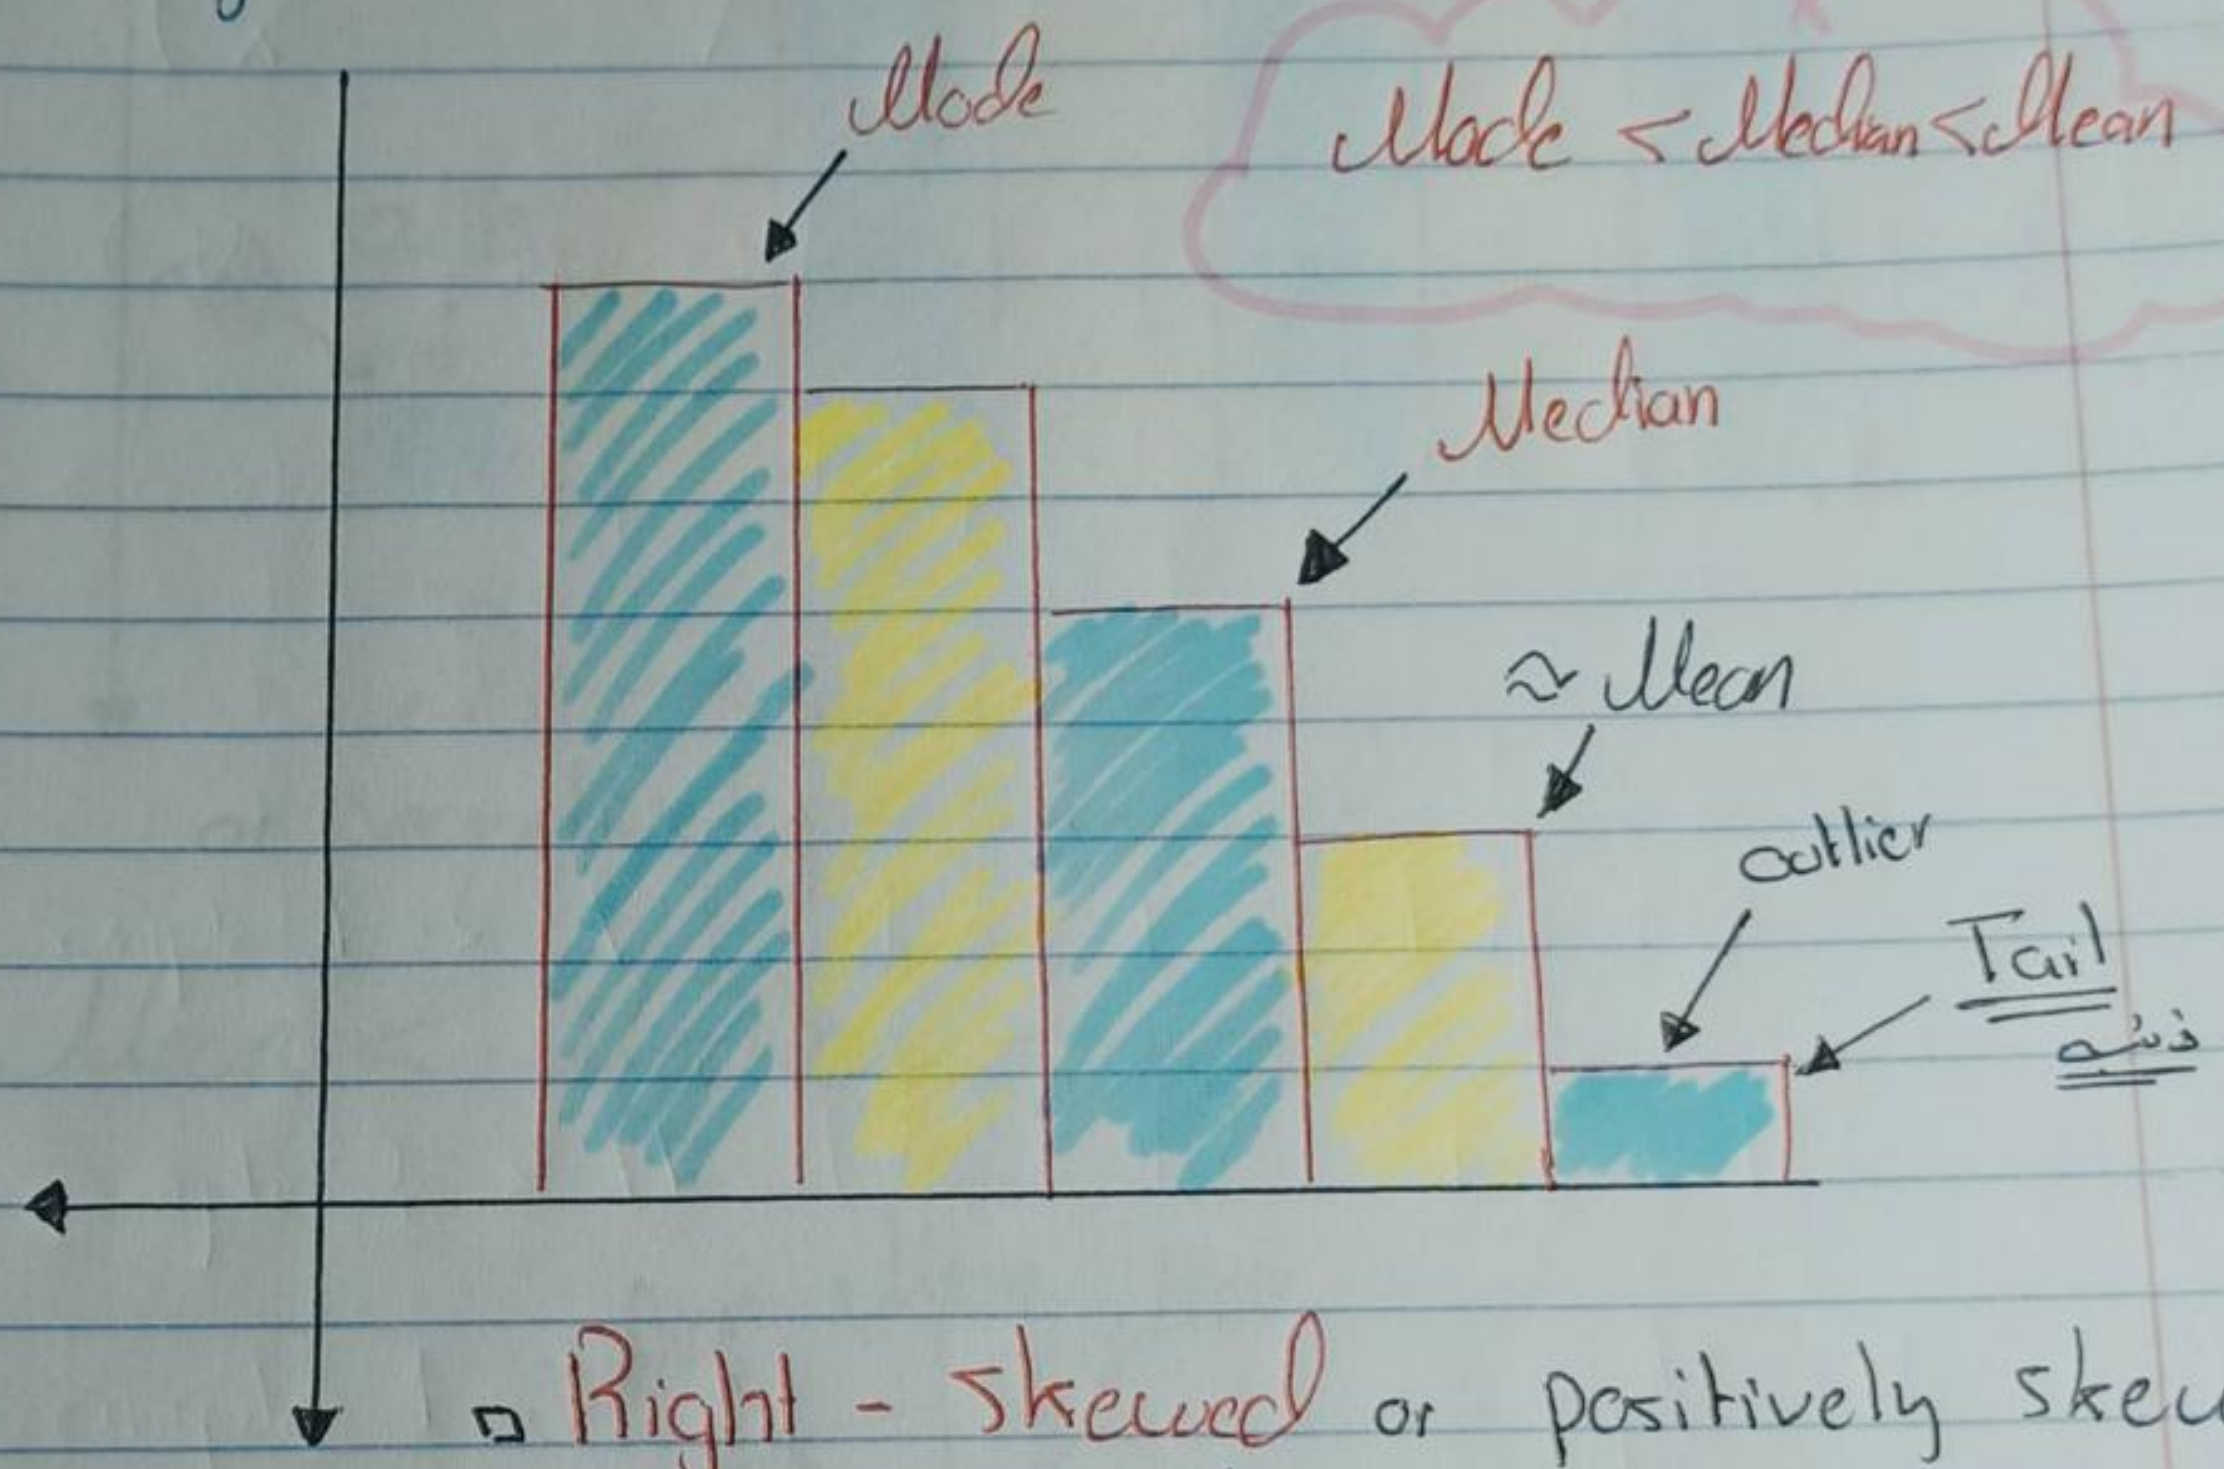 Mode
Mode < Median < Mean
Median
≈ Mean
outlier
Tail
▫ Right - skewed or positively skew